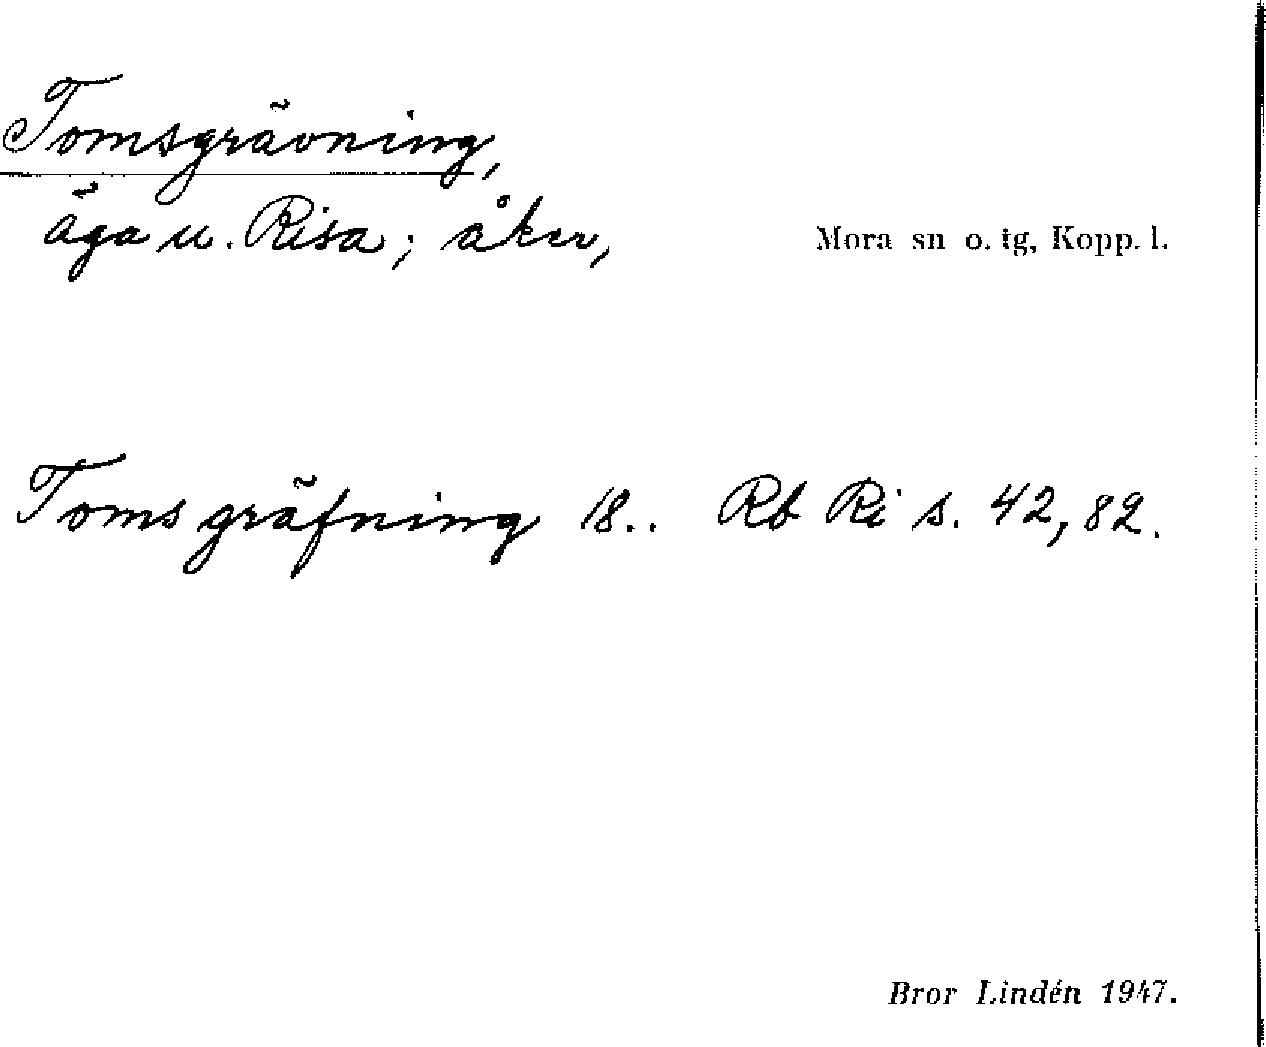 Tomsgrävning,
äga u. Risa; åker, Mora sn o. tg, Kopp. l.
Toms gräfning 18.. Rb Ri s. 42, 82.
Bror Lindén 1947.